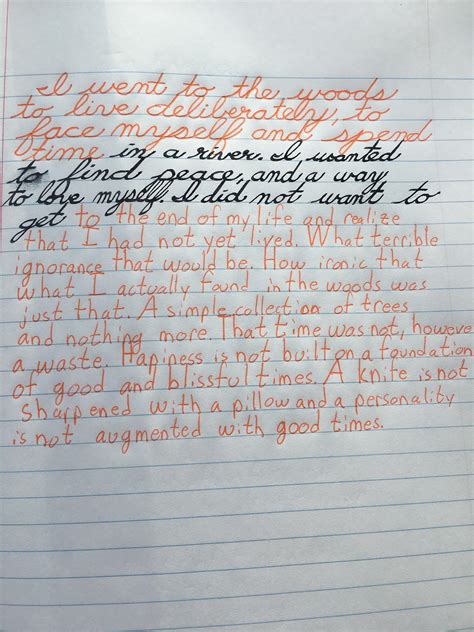 I went to the woods
to live deliberately, to
face myself and spend
time in a river. I wanted
to find peace, and a way
to love myself. I did not want to
get to the end of my life and realize
that I had not yet lived. What terrible
ignorance that would be. How ironic that
what I actually found in the woods was
just that. A simple collection of trees
and nothing more. That time was not, howeve
a waste. Hapiness is not built on a foundation
of good and blissful times. A knife is not
sharpened with a pillow and a personality
is not augmented with good times.